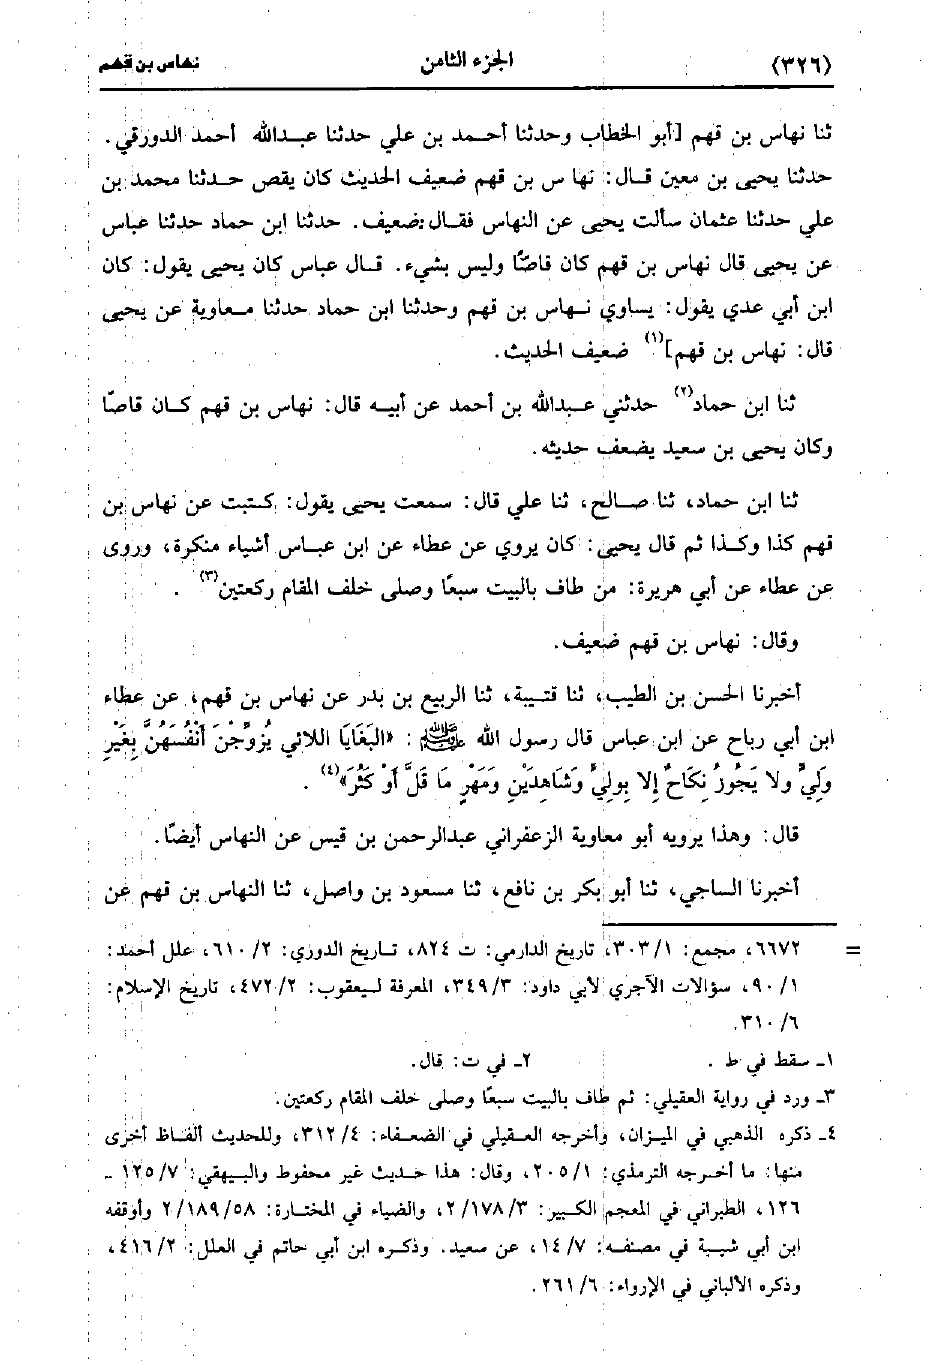 (٣٢٦) الجزء الثامن نهاس بن قهم
ثنا نهاس بن قهم [أبو الخطاب وحدثنا أحمد بن علي حدثنا عبدالله أحمد الدورقي.
حدثنا يحيى بن معين قال: نها س بن قهم ضعيف الحديث كان يقص حدثنا محمد بن
علي حدثنا عثمان سألت يحيى عن النهاس فقال: ضعيف. حدثنا ابن حماد حدثنا عباس
عن يحيى قال نهاس بن قهم كان قاصًا وليس بشيء. قال عباس كان يحيى يقول: كان
ابن أبي عدي يقول: يساوي نهاس بن قهم وحدثنا ابن حماد حدثنا معاوية عن يحيى
قال: نهاس بن قهم](١) ضعيف الحديث.
ثنا ابن حماد(٢) حدثني عبدالله بن أحمد عن أبيه قال: نهاس بن قهم كان قاصًا
وكان يحيى بن سعيد يضعف حديثه.
ثنا ابن حماد، ثنا صالح، ثنا علي قال: سمعت يحيى يقول: كتبت عن نهاس بن
قهم كذا وكذا ثم قال يحيى: كان يروي عن عطاء عن ابن عباس أشياء منكرة، وروى
عن عطاء عن أبي هريرة: من طاف بالبيت سبعًا وصلى خلف المقام ركعتين(٣).
وقال: نهاس بن قهم ضعيف.
أخبرنا الحسن بن الطيب، ثنا قتيبة، ثنا الربيع بن بدر عن نهاس بن قهم، عن عطاء
ابن أبي رباح عن ابن عباس قال رسول الله ﷺ: «البَغَايَا اللائي يُزَوِّجْنَ أَنْفُسَهُنَّ بِغَيْرِ
وَلِيٍّ ولا يَجُوزُ نِكَاحٌ إِلا بِوليٍّ وَشَاهِدَيْنِ وَمَهْرٍ مَا قَلَّ أَوْ كَثُرَ»(٤).
قال: وهذا يرويه أبو معاوية الزعفراني عبدالرحمن بن قيس عن النهاس أيضًا.
أخبرنا الساجي، ثنا أبو بكر بن نافع، ثنا مسعود بن واصل، ثنا النهاس بن قهم عن
= ٦٦٧٢، مجمع: ٣٠٣/١، تاريخ الدارمي: ت ٨٢٤، تاريخ الدوري: ٦١٠/٢، علل أحمد:
٩٠/١، سؤالات الآجري لأبي داود: ٣٤٩/٣، المعرفة ليعقوب: ٤٧٢/٢، تاريخ الإسلام:
٣١٠/٦.
١ـ سقط في ط. ٢ـ في ت: قال.
٣ـ ورد في رواية العقيلي: ثم طاف بالبيت سبعًا وصلى خلف المقام ركعتين.
٤ـ ذكره الذهبي في الميزان، وأخرجه العقيلي في الضعفاء: ٣١٢/٤، وللحديث ألفاظ أخرى
منها: ما أخرجه الترمذي: ٢٠٥/١، وقال: هذا حديث غير محفوظ والبيهقي: ١٢٥/٧ ـ
١٢٦، الطبراني في المعجم الكبير: ٢/١٧٨/٣، والضياء في المختارة: ٢/١٨٩/٥٨ وأوقفه
ابن أبي شيبة في مصنفه: ١٤/٧، عن سعيد. وذكره ابن أبي حاتم في العلل: ٤١٦/٢،
وذكره الألباني في الإرواء: ٢٦١/٦.